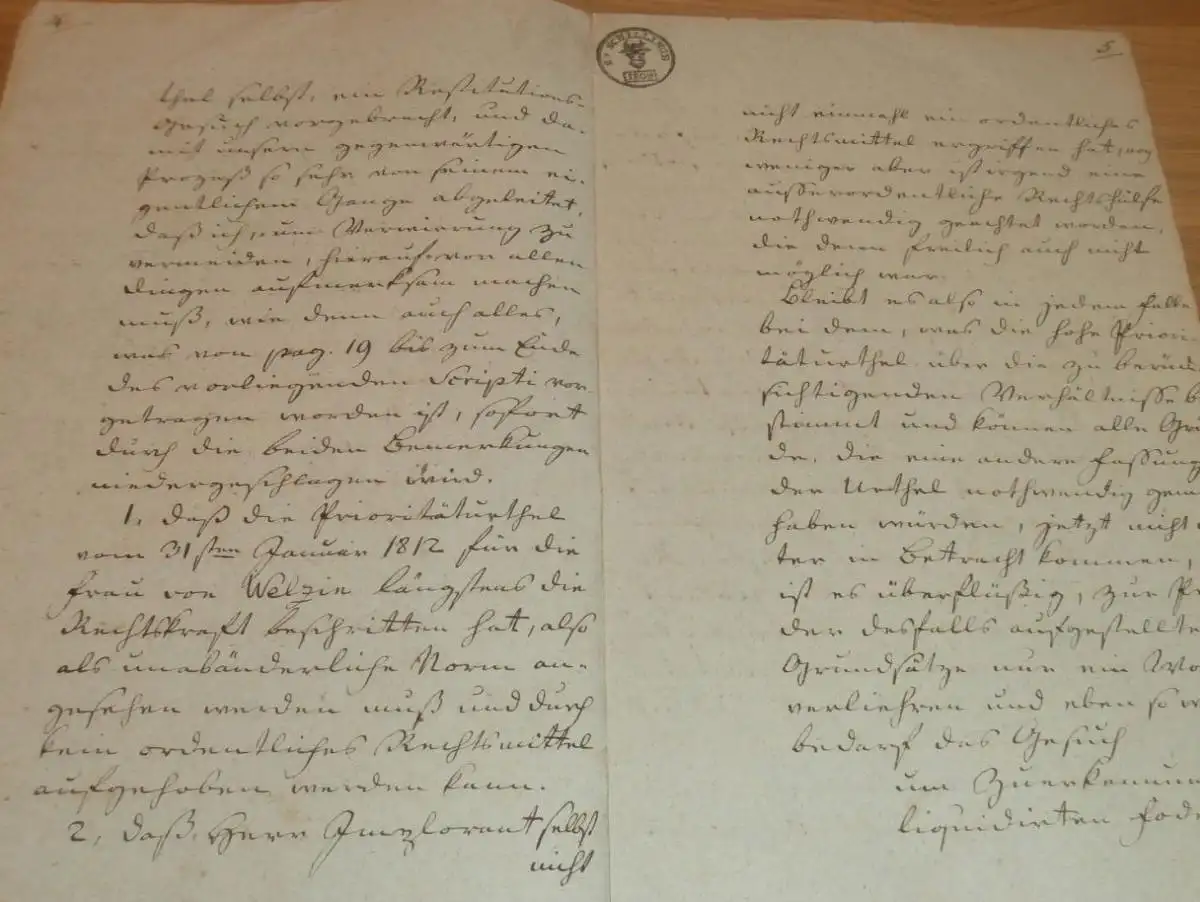 4
thel selbst, ein Restitutions-
Gesuch vorgebracht, und da-
mit unsern gegenwärtigen
Prozeß so sehr von seinem ei-
gentlichem Gange abgeleitet,
daß ich, um Verwirrung zu
vermeiden, hierauf vor allen
Dingen aufmerksam machen
muß, wie denn auch alles,
was von pag. 19 bis zum Ende
des vorliegenden Scripti vor-
getragen worden ist, sofort
durch die beiden Bemerkungen
niedergeschlagen wird.
1, daß die Prioritäturthel
vom 31sten Januar 1812 für die
Frau von Welzin längstens die
Rechtskraft beschritten hat, also
als unabänderliche Norm an-
gesehen werden muß und durch
kein ordentliches Rechtsmittel
aufgehoben werden kann.
2, daß Herr Implorant selbst
nicht
SCHILLINGE
5
nicht einmahl ein ordentliches
Rechtsmittel ergriffen hat, noch
weniger aber ist irgend eine
ausserordentliche Rechtshülfe
nothwendig geachtet worden,
die denn freilich auch nicht
möglich war.
Bleibt es also in jedem Falle
bei dem, was die hohe Priori-
täturthel über die zu berück
sichtigenden Verhältnisse b
stimmt und können alle Grü
de, die eine andere Fassung
der Urthel nothwendig gema
haben würden, jetzt nicht
ter in Betracht kommen,
ist es überflüßig, zur Pr
der desfalls aufgestellte
Grundsätze nur ein Wo
verliehren und eben so w
bedarf das Gesuch
um Zuerkennun
liquidirten Fode